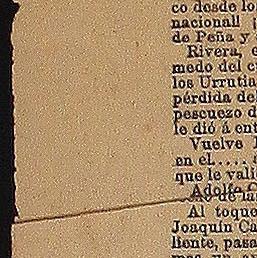 co desde lo
nacionall ¡
de Peña y
Rivera, e
medo del c
los Urrutia
pérdida de
pescuezo d
le dió á ent
Vuelve
en el.... 
que le vali
Adolfo C
de la
Al toque
Joaquín Ca
liente, pasa